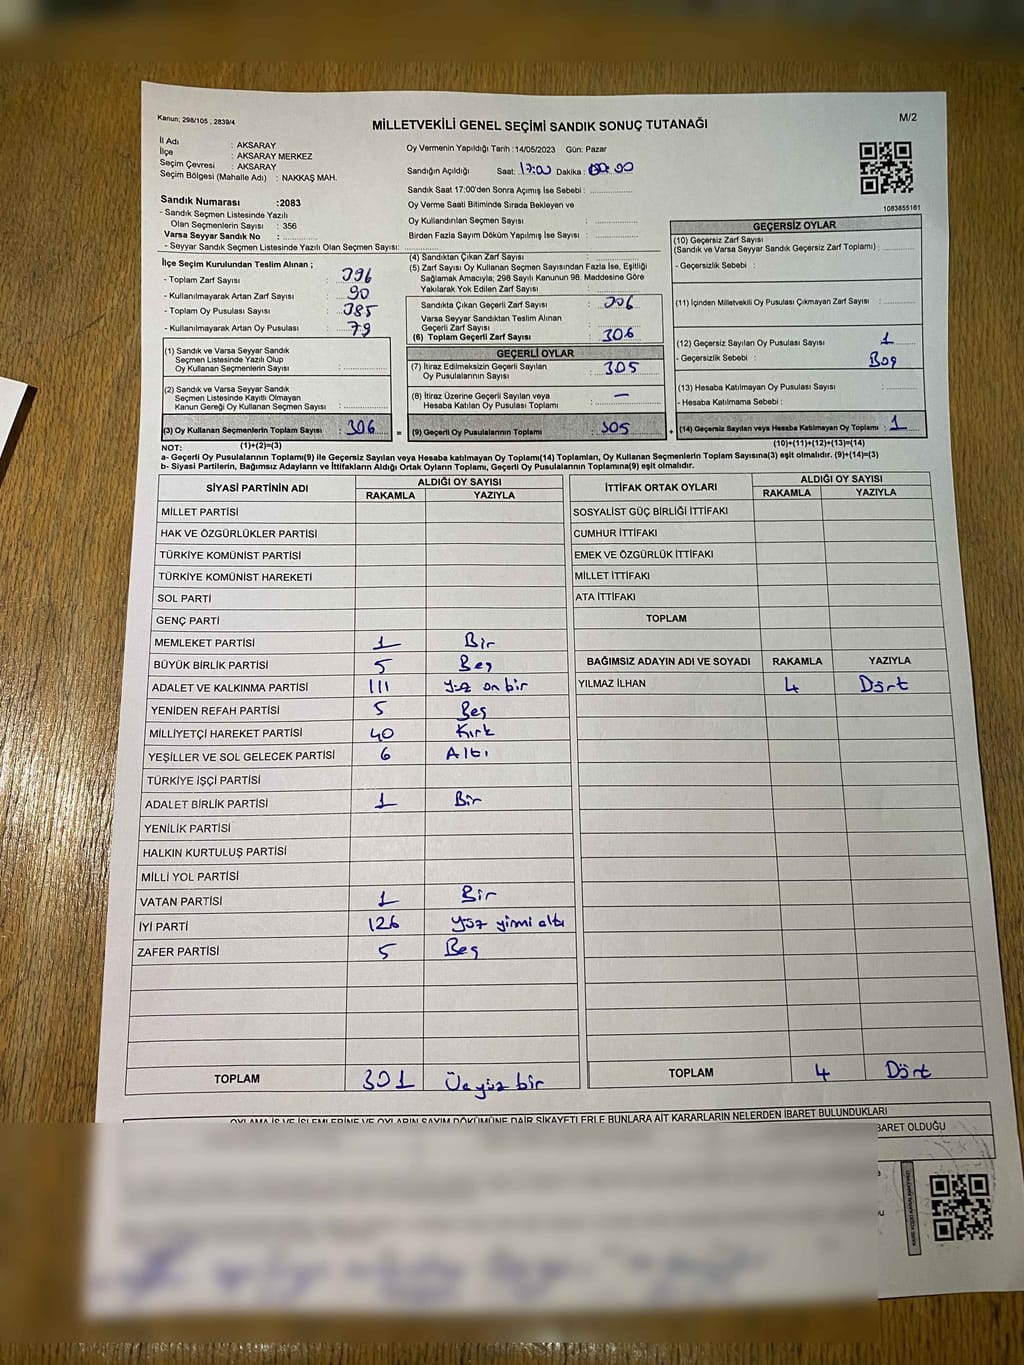 Kanun; 298/105 , 2839/4
M/2
MİLLETVEKİLİ GENEL SEÇİMİ SANDIK SONUÇ TUTANAĞI
İl Adı : AKSARAY
İlçe : AKSARAY MERKEZ
Seçim Çevresi : AKSARAY
Seçim Bölgesi (Mahalle Adı) : NAKKAŞ MAH.
Sandık Numarası :2083
- Sandık Seçmen Listesinde Yazılı
Olan Seçmenlerin Sayısı : 356
Varsa Seyyar Sandık No :
- Seyyar Sandık Seçmen Listesinde Yazılı Olan Seçmen Sayısı:
Oy Vermenin Yapıldığı Tarih :14/05/2023 Gün: Pazar
Sandığın Açıldığı Saat: 17:00 Dakika: 00
Sandık Saat 17:00'den Sonra Açımış İse Sebebi :
Oy Verme Saati Bitiminde Sırada Bekleyen ve
Oy Kullandırılan Seçmen Sayısı :
Birden Fazla Sayım Döküm Yapılmış İse Sayısı :
1083855161
İlçe Seçim Kurulundan Teslim Alınan ;
- Toplam Zarf Sayısı : 396
- Kullanılmayarak Artan Zarf Sayısı : 90
- Toplam Oy Pusulası Sayısı : 385
- Kullanılmayarak Artan Oy Pusulası : 79
(1) Sandık ve Varsa Seyyar Sandık
Seçmen Listesinde Yazılı Olup
Oy Kullanan Seçmenlerin Sayısı :
(2) Sandık ve Varsa Seyyar Sandık
Seçmen Listesinde Kayıtlı Olmayan
Kanun Gereği Oy Kullanan Seçmen Sayısı :
(3) Oy Kullanan Seçmenlerin Toplam Sayısı : 306
(1)+(2)=(3)
=
(4) Sandıktan Çıkan Zarf Sayısı :
(5) Zarf Sayısı Oy Kullanan Seçmen Sayısından Fazla İse, Eşitliği
Sağlamak Amacıyla; 298 Sayılı Kanunun 98. Maddesine Göre
Yakılarak Yok Edilen Zarf Sayısı :
Sandıkta Çıkan Geçerli Zarf Sayısı : 306
Varsa Seyyar Sandıktan Teslim Alınan
Geçerli Zarf Sayısı :
(6) Toplam Geçerli Zarf Sayısı : 306
GEÇERLİ OYLAR
(7) İtiraz Edilmeksizin Geçerli Sayılan
Oy Pusulalarının Sayısı : 305
(8) İtiraz Üzerine Geçerli Sayılan veya
Hesaba Katılan Oy Pusulası Toplamı : —
(9) Geçerli Oy Pusulalarının Toplamı : 305
+
GEÇERSİZ OYLAR
(10) Geçersiz Zarf Sayısı
(Sandık ve Varsa Seyyar Sandık Geçersiz Zarf Toplamı) :
- Geçersizlik Sebebi :
(11) İçinden Milletvekili Oy Pusulası Çıkmayan Zarf Sayısı :
(12) Geçersiz Sayılan Oy Pusulası Sayısı : 1
- Geçersizlik Sebebi : Boş
(13) Hesaba Katılmayan Oy Pusulası Sayısı :
- Hesaba Katılmama Sebebi :
(14) Geçersiz Sayılan veya Hesaba Katılmayan Oy Toplamı : 1
(10)+(11)+(12)+(13)=(14)
NOT:
a- Geçerli Oy Pusulalarının Toplamı(9) ile Geçersiz Sayılan veya Hesaba katılmayan Oy Toplamı(14) Toplamları, Oy Kullanan Seçmenlerin Toplam Sayısına(3) eşit olmalıdır. (9)+(14)=(3)
b- Siyasi Partilerin, Bağımsız Adayların ve İttifakların Aldığı Ortak Oyların Toplamı, Geçerli Oy Pusulalarının Toplamına(9) eşit olmalıdır.
SİYASİ PARTİNİN ADI ALDIĞI OY SAYISI
RAKAMLA YAZIYLA
MİLLET PARTİSİ
HAK VE ÖZGÜRLÜKLER PARTİSİ
TÜRKİYE KOMÜNİST PARTİSİ
TÜRKİYE KOMÜNİST HAREKETİ
SOL PARTİ
GENÇ PARTİ
MEMLEKET PARTİSİ 1 Bir
BÜYÜK BİRLİK PARTİSİ 5 Beş
ADALET VE KALKINMA PARTİSİ 111 yüz on bir
YENİDEN REFAH PARTİSİ 5 Beş
MİLLİYETÇİ HAREKET PARTİSİ 40 Kırk
YEŞİLLER VE SOL GELECEK PARTİSİ 6 Altı
TÜRKİYE İŞÇİ PARTİSİ
ADALET BİRLİK PARTİSİ 1 Bir
YENİLİK PARTİSİ
HALKIN KURTULUŞ PARTİSİ
MİLLİ YOL PARTİSİ
VATAN PARTİSİ 1 Bir
İYİ PARTİ 126 yüz yirmi altı
ZAFER PARTİSİ 5 Beş
TOPLAM 301 Üç yüz bir
İTTİFAK ORTAK OYLARI ALDIĞI OY SAYISI
RAKAMLA YAZIYLA
SOSYALİST GÜÇ BİRLİĞİ İTTİFAKI
CUMHUR İTTİFAKI
EMEK VE ÖZGÜRLÜK İTTİFAKI
MİLLET İTTİFAKI
ATA İTTİFAKI
TOPLAM
BAĞIMSIZ ADAYIN ADI VE SOYADI RAKAMLA YAZIYLA
YILMAZ İLHAN 4 Dört
TOPLAM 4 Dört
OYLAMA İŞ VE İŞLEMLERİNE VE OYLARIN SAYIM DÖKÜMÜNE DAİR ŞİKAYETLERLE BUNLARA AİT KARARLARIN NELERDEN İBARET BULUNDUKLARI
BARET OLDUĞU